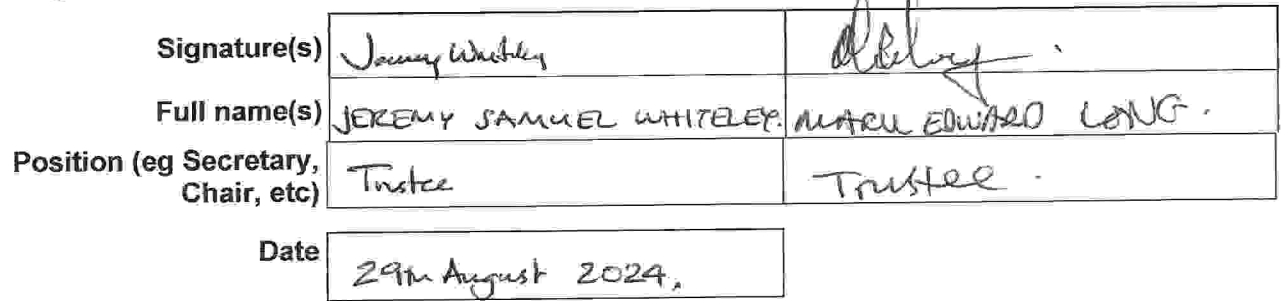 Signature(s) Jeremy Whiteley
Full name(s) JEREMY SAMUEL WHITELEY. MARK EDWARD LONG.
Position (eg Secretary, Chair, etc) Trustee Trustee.
Date 29th August 2024.